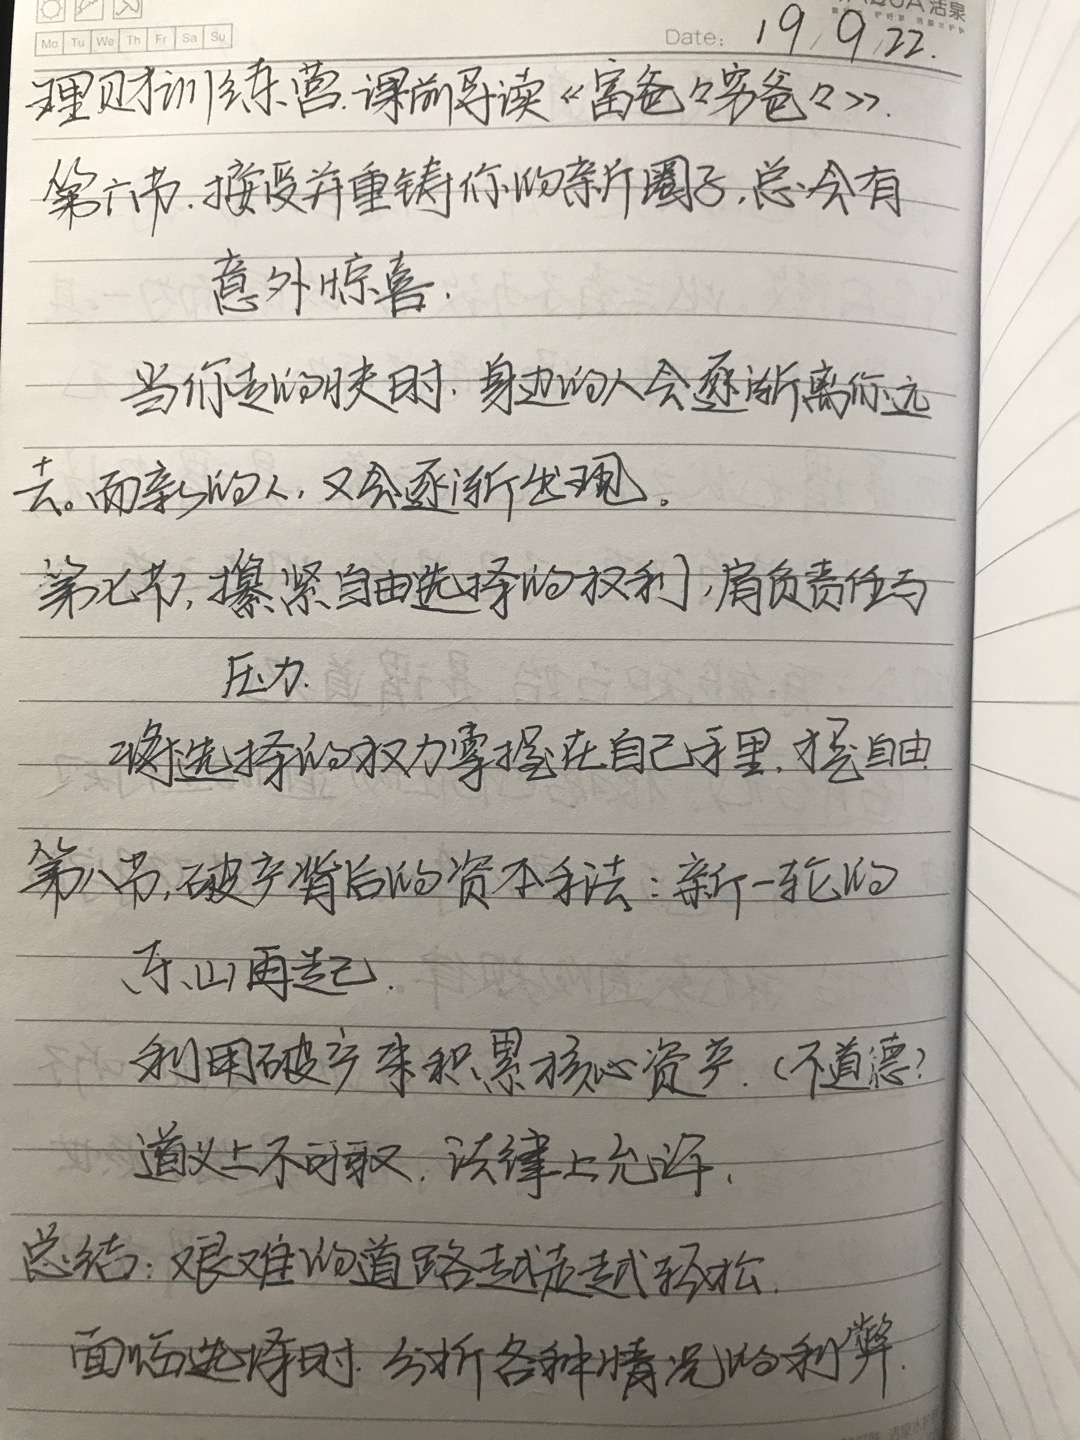 活泉
Mo Tu We Th Fr Sa Su
Date: 19/9/22.
理财训练营.课前导读《富爸々穷爸々》.
第六节.接受并重铸你的新圈子,总会有
意外惊喜.
当你走的快时.身边的人会逐渐离你远
去。而新的人,又会逐渐出现。
第七节,攥紧自由选择的权利,肩负责任与
压力.
将选择的权力掌握在自己手里.才是自由
第八节,破产背后的资本手法:新一轮的
东山再起.
利用破产来积累核心资产.(不道德?
道义上不可取.法律上允许.
总结:艰难的道路越走越轻松.
面临选择时.分析各种情况的利弊.